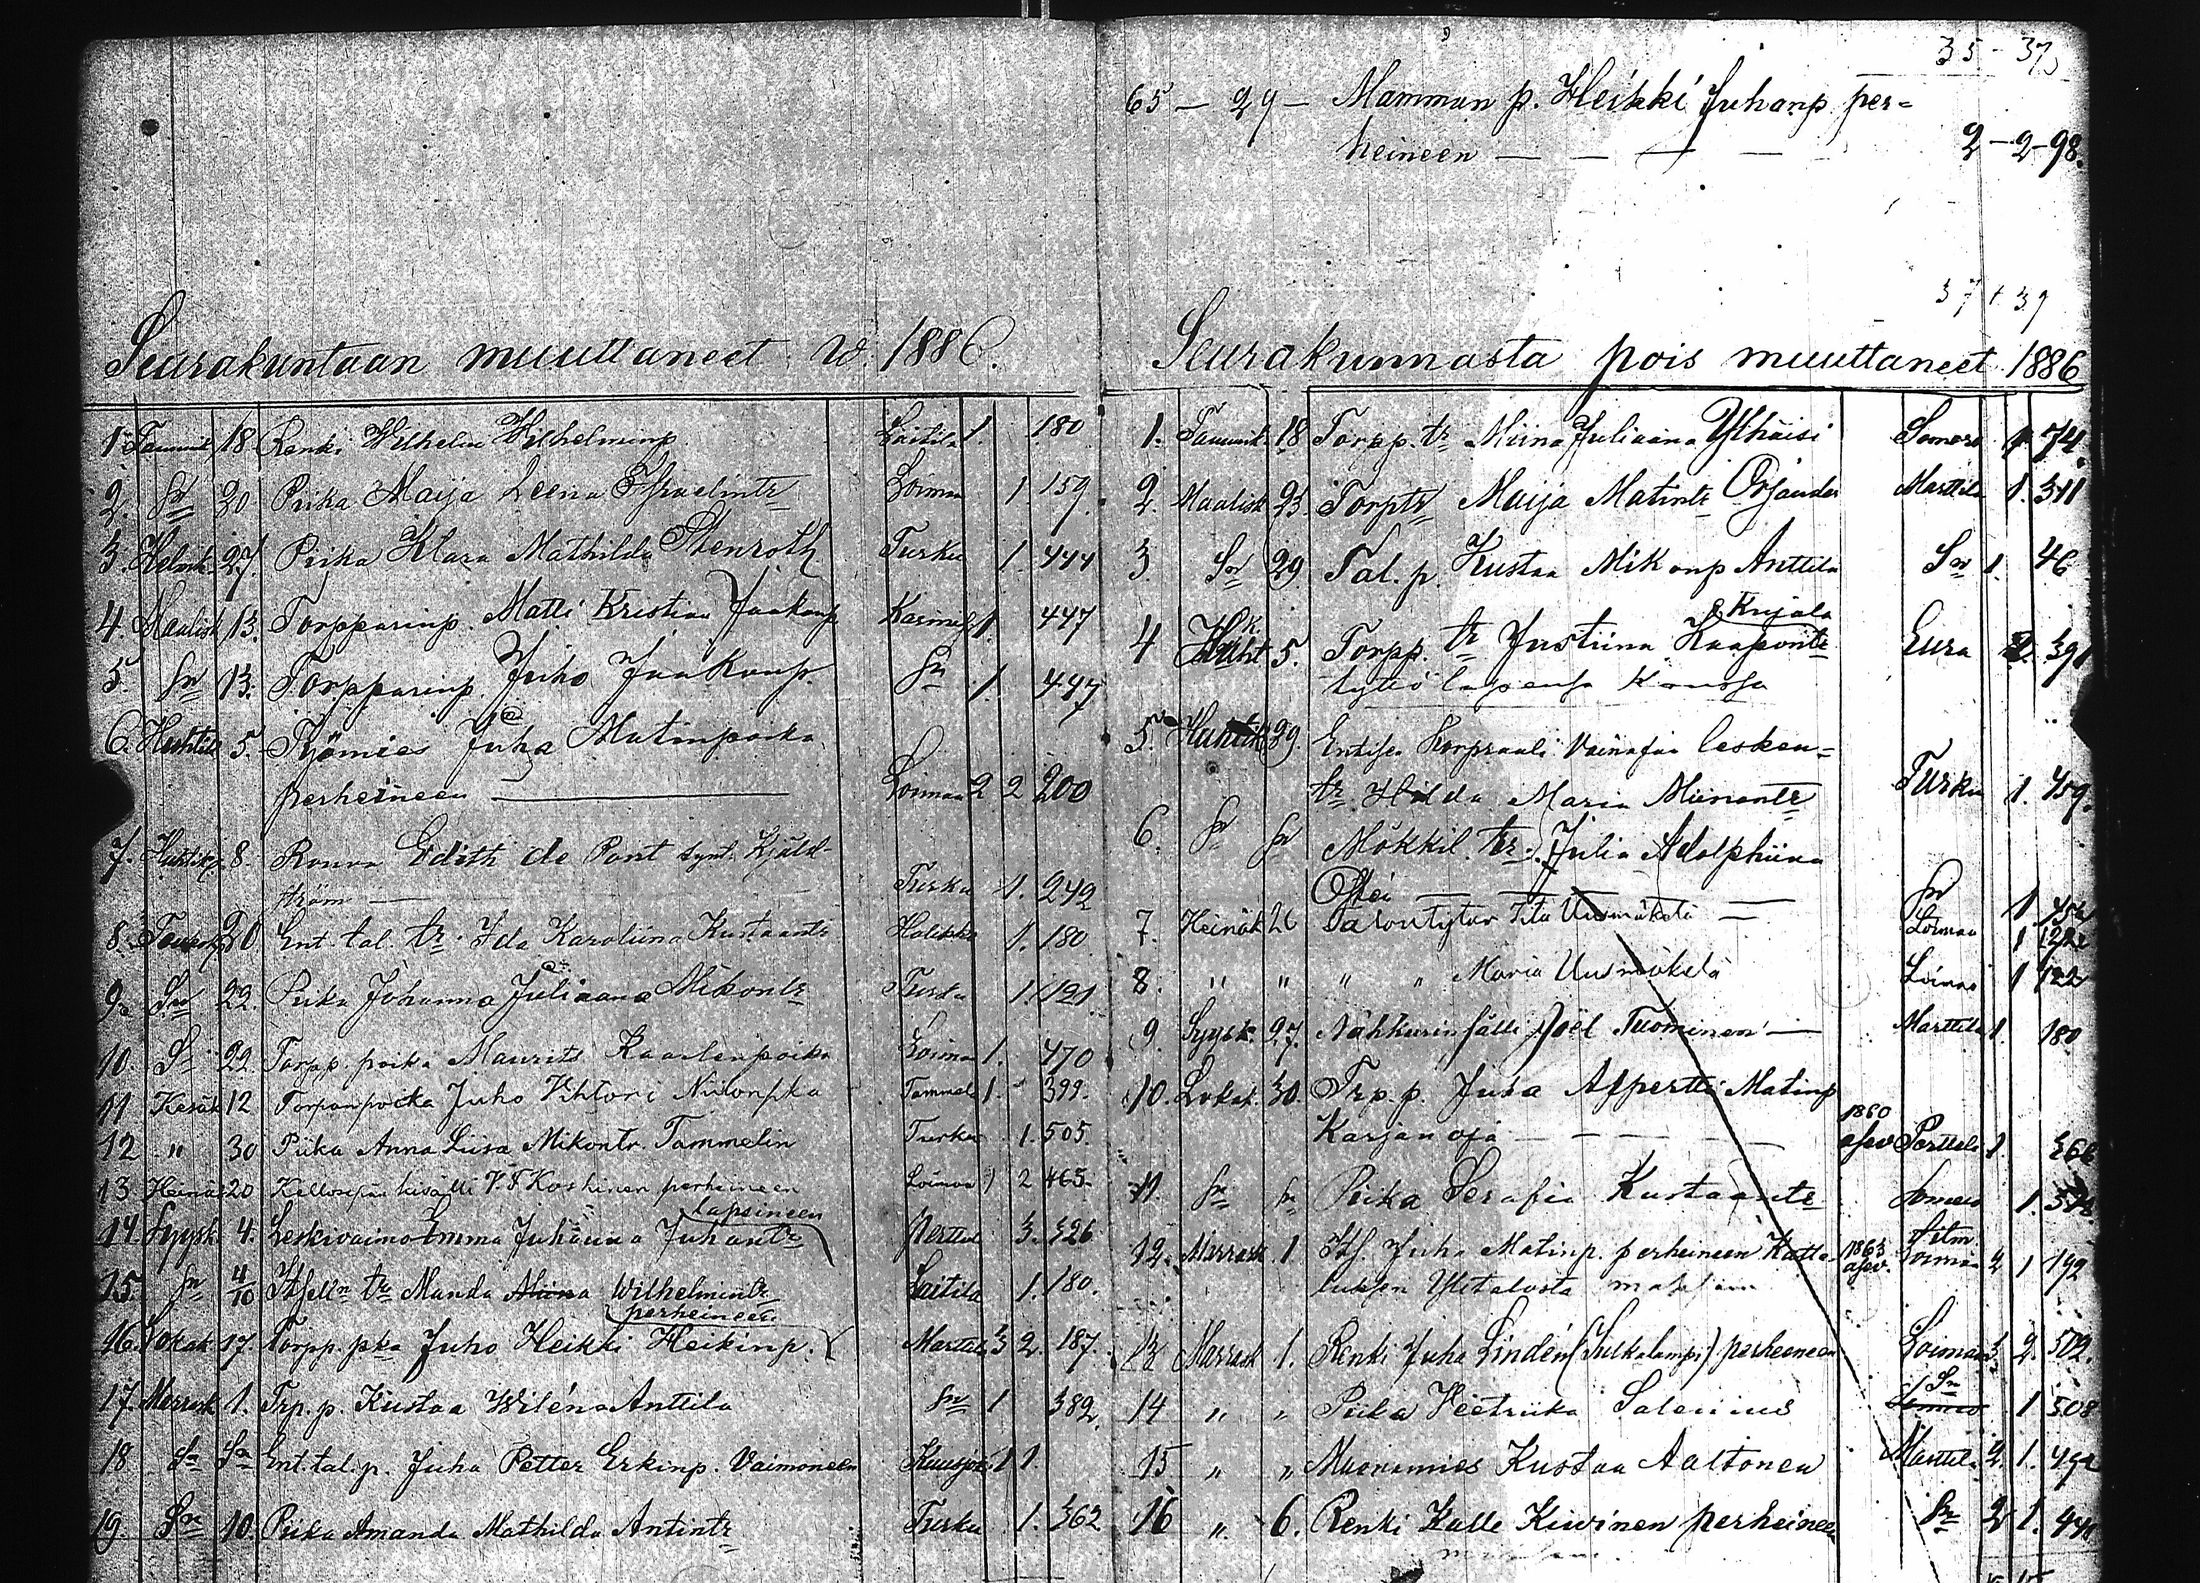 Seurakuntaan muuttaneet v. 1886.
1. Tammik 18 Renki Wilhelm Wilhelminp Laitila 1. 180
2. Sn 20 Piika Maija Leena Loimaa 1. 159.
3. Helmk 27. Piika Klara Mathilda Stenroth Turku 1. 444
4. Maalisk 13. Torpparinp. Matti Kristian Jaakonp 1. 447
5. Sn 13. Torpparinp. Juho Jaakonp. Sn 1. 447
6. Huhtik 5. Työmies Juha Matinpoika
perheineen Loimaa 2 2 200
7. Huhtik 8. Rouva Edith de Pont synt.
ström Turku 1. 242
8. Ent. tal. tr. Ida Karoliina Kustaantr Halikko 1. 180
9. Sn 22. Piika Johanna Juliaana Mikontr Turku 1. 121
10. Sn 22. Torpp. poika Maurits Kaarlenpoika Loimaa 1. 470
11 Kesäk 12 Torpanpoika Juho Vihtori Tammela 1. 399.
12 " 30 Piika Anna Liisa Mikontr. Tammelin Turku 1. 505.
13 Heinäk 20 Kellosepän Koskinen perheineen Loimaa 1 2 465.
lapsineen
14. Syysk 4. Leskivaimo Emma Juhanna Juhantr Perttel 3. 326
15. Sn 4/10 Itsell. tr Manda Miina Wilhelmintr Laitila 1. 180.
perheineen
16. Lokak 17. Torpp. pka Juho Heikki Heikinp. Marttila 3 2. 187.
17. Marrask 1. Trp. p. Kustaa Wilén Anttila Sn 1 382
18 Sn Sn Ent. tal. p. Juha Petter Erkinp. Vaimoneen 1 1.
19. Sn 10. Piika Amanda Mathilda Antintr Turku 1. 362
35 - 37
65 — 29 — Mamman p. Heikki Juhanp. per-
heineen — — — — 2 - 2 - 98.
37 + 39
Seurakunnasta pois muuttaneet 1886
1. Tammik. 18 Torpp. tr Miina Juliaana Ylhäisi Somero 1. 74.
2. Maalisk 23. Torptr Maija Matintr Orjander Marttila 1. 311
3. Sn 29 Tal. p. Kustaa Mikonp Anttila Sn 1. 46
Kujala
4 5. Torpp. tr Justiina Kaapontr Eura 2. 391
tyttö lapsensa kanssa
5. Huhtik 29. Entisen Korpraali vainajan lesken-
tr. Hilda Maria Turku 1. 459.
6. Sn Sn Mökkil. tr. Julia Adolphiina
Sn 1
7. Heinäk 26 Talontytär Iita Uusmäkelä — Loimaa 1 122
8. " " " " Maria Uusmäkelä Loimaa 1 122
9. Syysk. 27. Nahkurin sälli Joel Tuominen — Marttila 1. 180
10. Lokak. 30. Trp. p. Juha Alpertti Matinp
Karjanoja — — — — 1860 asev. Perttel 1.
11 Sn Sn Piika Serafia Kustaantr Somero 1.
12. Marrask 1. Its. Juha Matinp. perheineen 1863 asev. Loimaa 2 1 192
Ylitalosta
13 Marrask 1. Renki Juha Lindén (Sulkalampi) perheineen Loimaa 3 2. 502.
14 " " Piika Veetriika Salenius Sn 1 508
15 " " Muonamies Kustaa Aaltonen Marttila 2. 1.
16 " 6. Renki Kalle Kiwinen perheineen Sn 2 1.